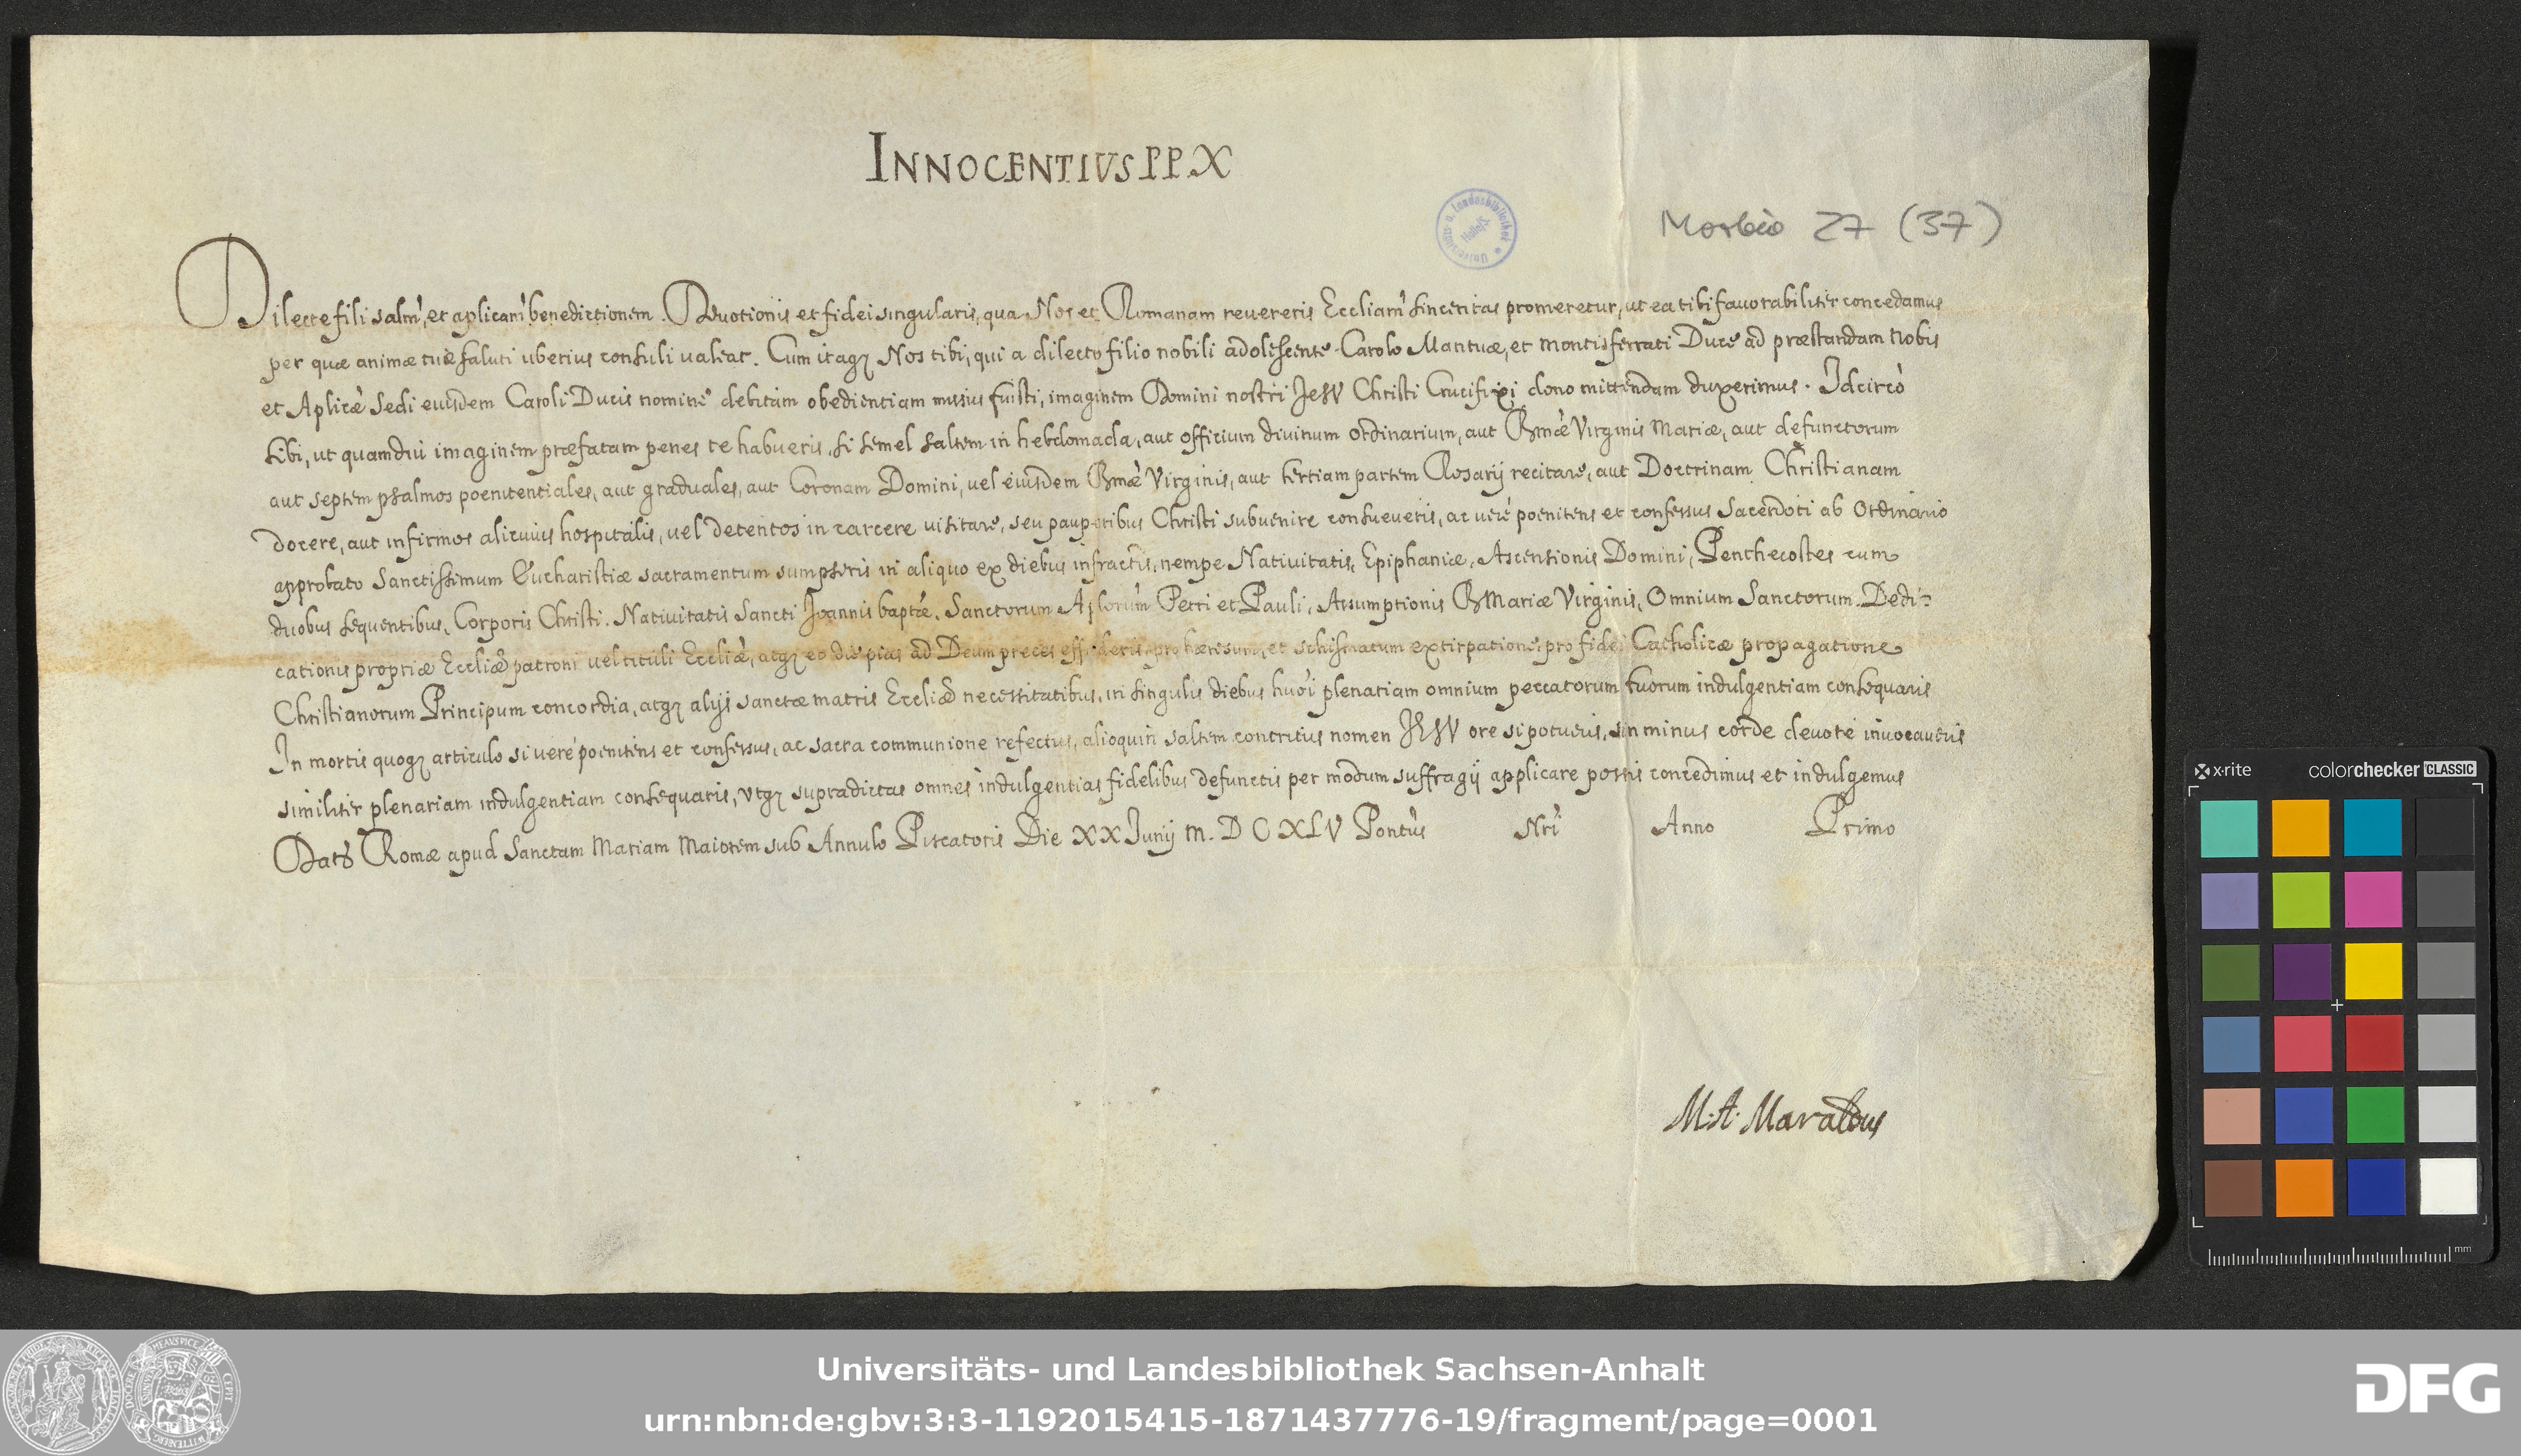 INNOCENTIVS PP. X
Morbio 27 (37)
Universitäts u. Landesbibliothek Halle/S.
Dilecte fili salm̀, et aplicam̀ benedictionem. Devotionis et fidei singularis, qua Nos et Romanam revereris Eccliam̀ sinceritas promeretur, ut ea tibi favorabiliter concedamus
per quæ animæ tuæ saluti uberius consuli valeat. Cum itaqȝ Nos tibi, qui a dilecto filio nobili adolescente Carolo Mantuæ, et Montisferrati Duce ad præstandam Nobis
et Aplicæ̀ Sedi eiusdem Caroli Ducis nomine debitam obedientiam missus fuisti, imaginem Domini nostri JesV Christi Crucifixi dono mittendam duxerimus. Idcircò
tibi, ut quamdiu imaginem præfatam penes te habueris, si semel saltem in hebdomada, aut officium divinum ordinarium, aut Bmæ̀ Virginis Mariæ, aut defunctorum
aut septem psalmos poenitentiales, aut graduales, aut Coronam Domini, vel eiusdem Bmæ̀ Virginis, aut tertiam partem Rosarij recitare, aut Doctrinam Christianam
docere, aut infirmos alicuius hospitalis, vel detentos in carcere visitare, seu pauperibus Christi subvenire consueveris, ac verè poenitens et confessus Sacerdoti ab Ordinario
approbato Sanctissimum Eucharistiæ sacramentum sumpseris in aliquo ex diebus infractis, nempe Nativitatis, Epiphaniæ, Ascensionis Domini, Penthecostes cum
duobus sequentibus, Corporis Christi, Nativitatis Sancti Joannis baptæ̀, Sanctorum Aplorum̀ Petri et Pauli, Assumptionis B Mariæ Virginis, Omnium Sanctorum, Dedi-
cationis propriæ Eccliæ̀ patroni vel tituli Eccliæ̀, atqȝ eo die pias ad Deum preces effuderis, pro hæresum, et schismatum extirpatione, pro fidei Catholicæ propagatione
Christianorum Principum concordia, atqȝ alijs sanctæ matris Eccliæ̀ necessitatibus, in singulis diebus huōi plenariam omnium peccatorum tuorum indulgentiam consequaris
In mortis quoqȝ articulo si verè poenitens et confessus, ac sacra communione refectus, alioquin saltem contritus nomen JESV ore si potueris, sin minus corde devotè invocaveris
similiter plenariam indulgentiam consequaris, Vtqȝ supradictas omnes indulgentias fidelibus defunctis per modum suffragij applicare possis concedimus et indulgemus
Dat Romæ apud Sanctam Mariam Maiorem sub Annulo Piscatoris Die XX Junij M. D C XLV Pontùs Nrì Anno Primo
M. A. Maraldus
x-rite
colorchecker CLASSIC
mm
Universitäts- und Landesbibliothek Sachsen-Anhalt
urn:nbn:de:gbv:3:3-1192015415-1871437776-19/fragment/page=0001
DFG